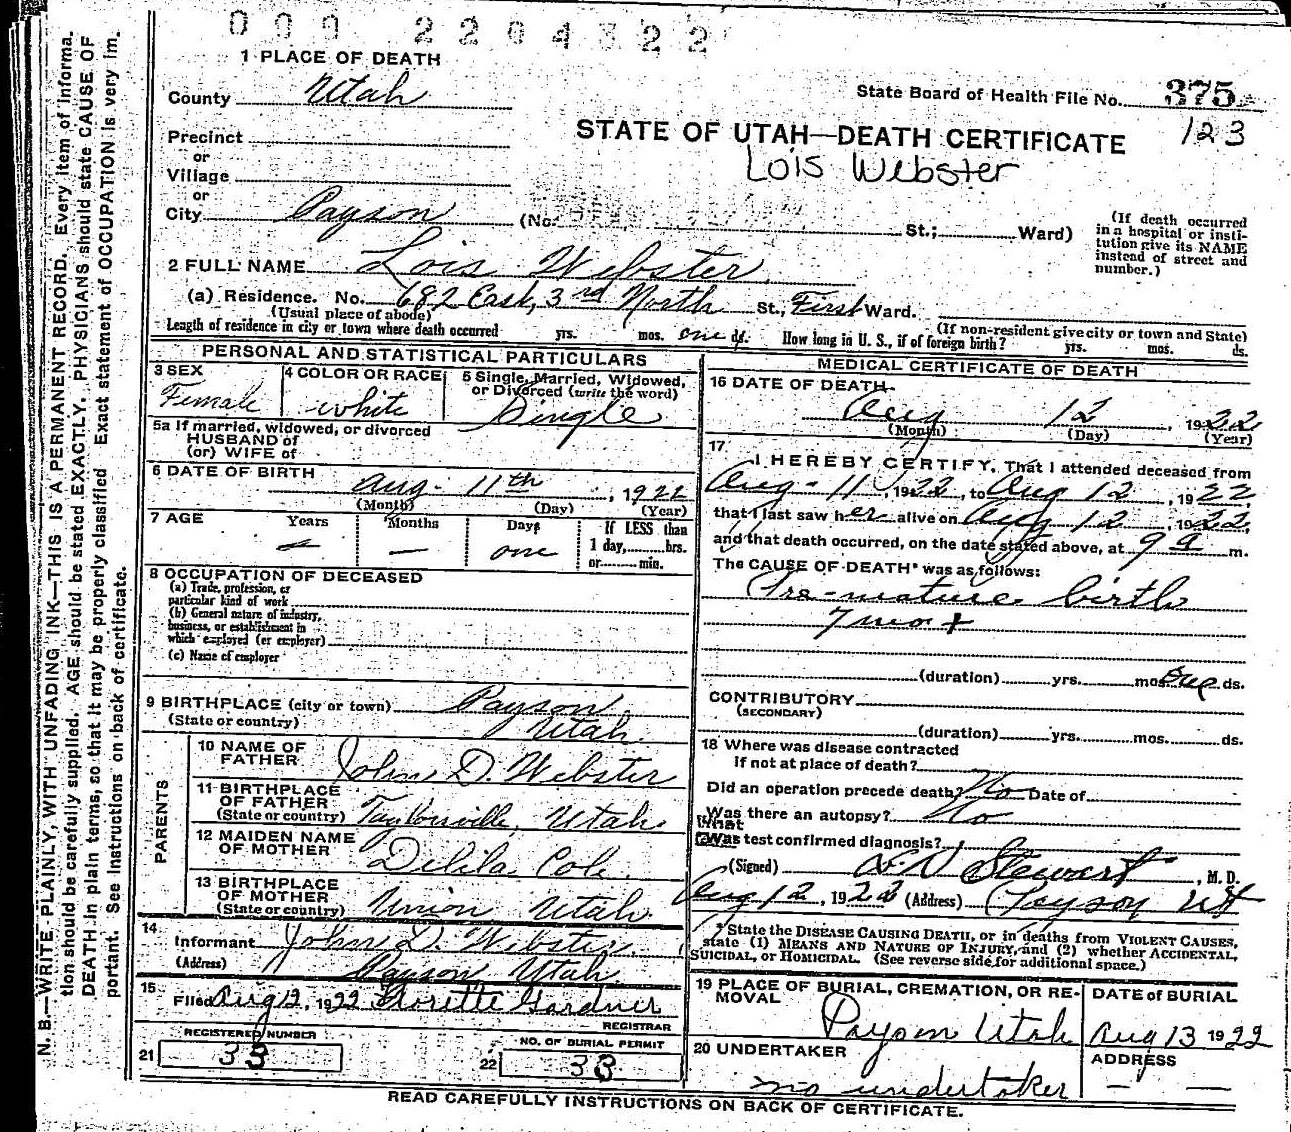 0 0 0 2 2 0 4 3 2 2
1 PLACE OF DEATH
County Utah
State Board of Health File No. 375
123
STATE OF UTAH—DEATH CERTIFICATE
Lois Webster
Precinct
or
Village
or
City Payson (No. St.; Ward)
(If death occurred in a hospital or insti-
tution give its NAME instead of street and number.)
2 FULL NAME Lois Webster
(a) Residence. No. 682 East, 3rd North St., First Ward.
(Usual place of abode)
(If non-resident give city or town and State)
Length of residence in city or town where death occurred yrs. mos. one ds. How long in U. S., if of foreign birth? yrs. mos. ds.
PERSONAL AND STATISTICAL PARTICULARS
3 SEX Female
4 COLOR OR RACE white
5 Single, Married, Widowed, or Divorced (write the word) Single
5a If married, widowed, or divorced
HUSBAND of
(or) WIFE of
6 DATE OF BIRTH Aug- 11th, 1922
(Month) (Day) (Year)
7 AGE Years Months Days If LESS than
— — one 1 day, hrs.
or min.
8 OCCUPATION OF DECEASED
(a) Trade, profession, or particular kind of work
(b) General nature of industry, business, or establishment in which employed (or employer)
(c) Name of employer
9 BIRTHPLACE (city or town) Payson
(State or country) Utah
PARENTS
10 NAME OF FATHER John D. Webster
11 BIRTHPLACE OF FATHER (State or country) Taylorsville, Utah
12 MAIDEN NAME OF MOTHER Delila Cole
13 BIRTHPLACE OF MOTHER (State or country) Union, Utah.
14 Informant John D. Webster,
(Address) Payson Utah
15 Filed Aug 12, 1922 Florette Gardner
REGISTRAR
REGISTERED NUMBER
21 33
NO. OF BURIAL PERMIT
22 33
MEDICAL CERTIFICATE OF DEATH
16 DATE OF DEATH
Aug 12, 1922
(Month) (Day) (Year)
17 I HEREBY CERTIFY, That I attended deceased from
Aug- 11, 1922, to Aug 12, 1922
that I last saw her alive on Aug 12, 1922,
and that death occurred, on the date stated above, at 9 a m.
The CAUSE OF DEATH* was as follows:
Pre-mature birth
7 mo +
(duration) yrs. mos. One ds.
CONTRIBUTORY
(SECONDARY)
(duration) yrs. mos. ds.
18 Where was disease contracted
if not at place of death?
Did an operation precede death? No Date of
Was there an autopsy? No
What
Was test confirmed diagnosis?
(Signed) Stewart, M. D.
Aug 12, 1922 (Address) Payson Ut
* State the DISEASE CAUSING DEATH, or in deaths from VIOLENT CAUSES,
state (1) MEANS AND NATURE OF INJURY, and (2) whether ACCIDENTAL,
SUICIDAL, or HOMICIDAL. (See reverse side for additional space.)
19 PLACE OF BURIAL, CREMATION, OR RE-
MOVAL
Payson Utah
DATE of BURIAL
Aug 13 1922
20 UNDERTAKER
no undertaker
ADDRESS
— —
READ CAREFULLY INSTRUCTIONS ON BACK OF CERTIFICATE.
N. B.—WRITE PLAINLY, WITH UNFADING INK—THIS IS A PERMANENT RECORD. Every item of informa-
tion should be carefully supplied. AGE should be stated EXACTLY. PHYSICIANS should state CAUSE OF
DEATH in plain terms, so that it may be properly classified. Exact statement of OCCUPATION is very im-
portant. See instructions on back of certificate.